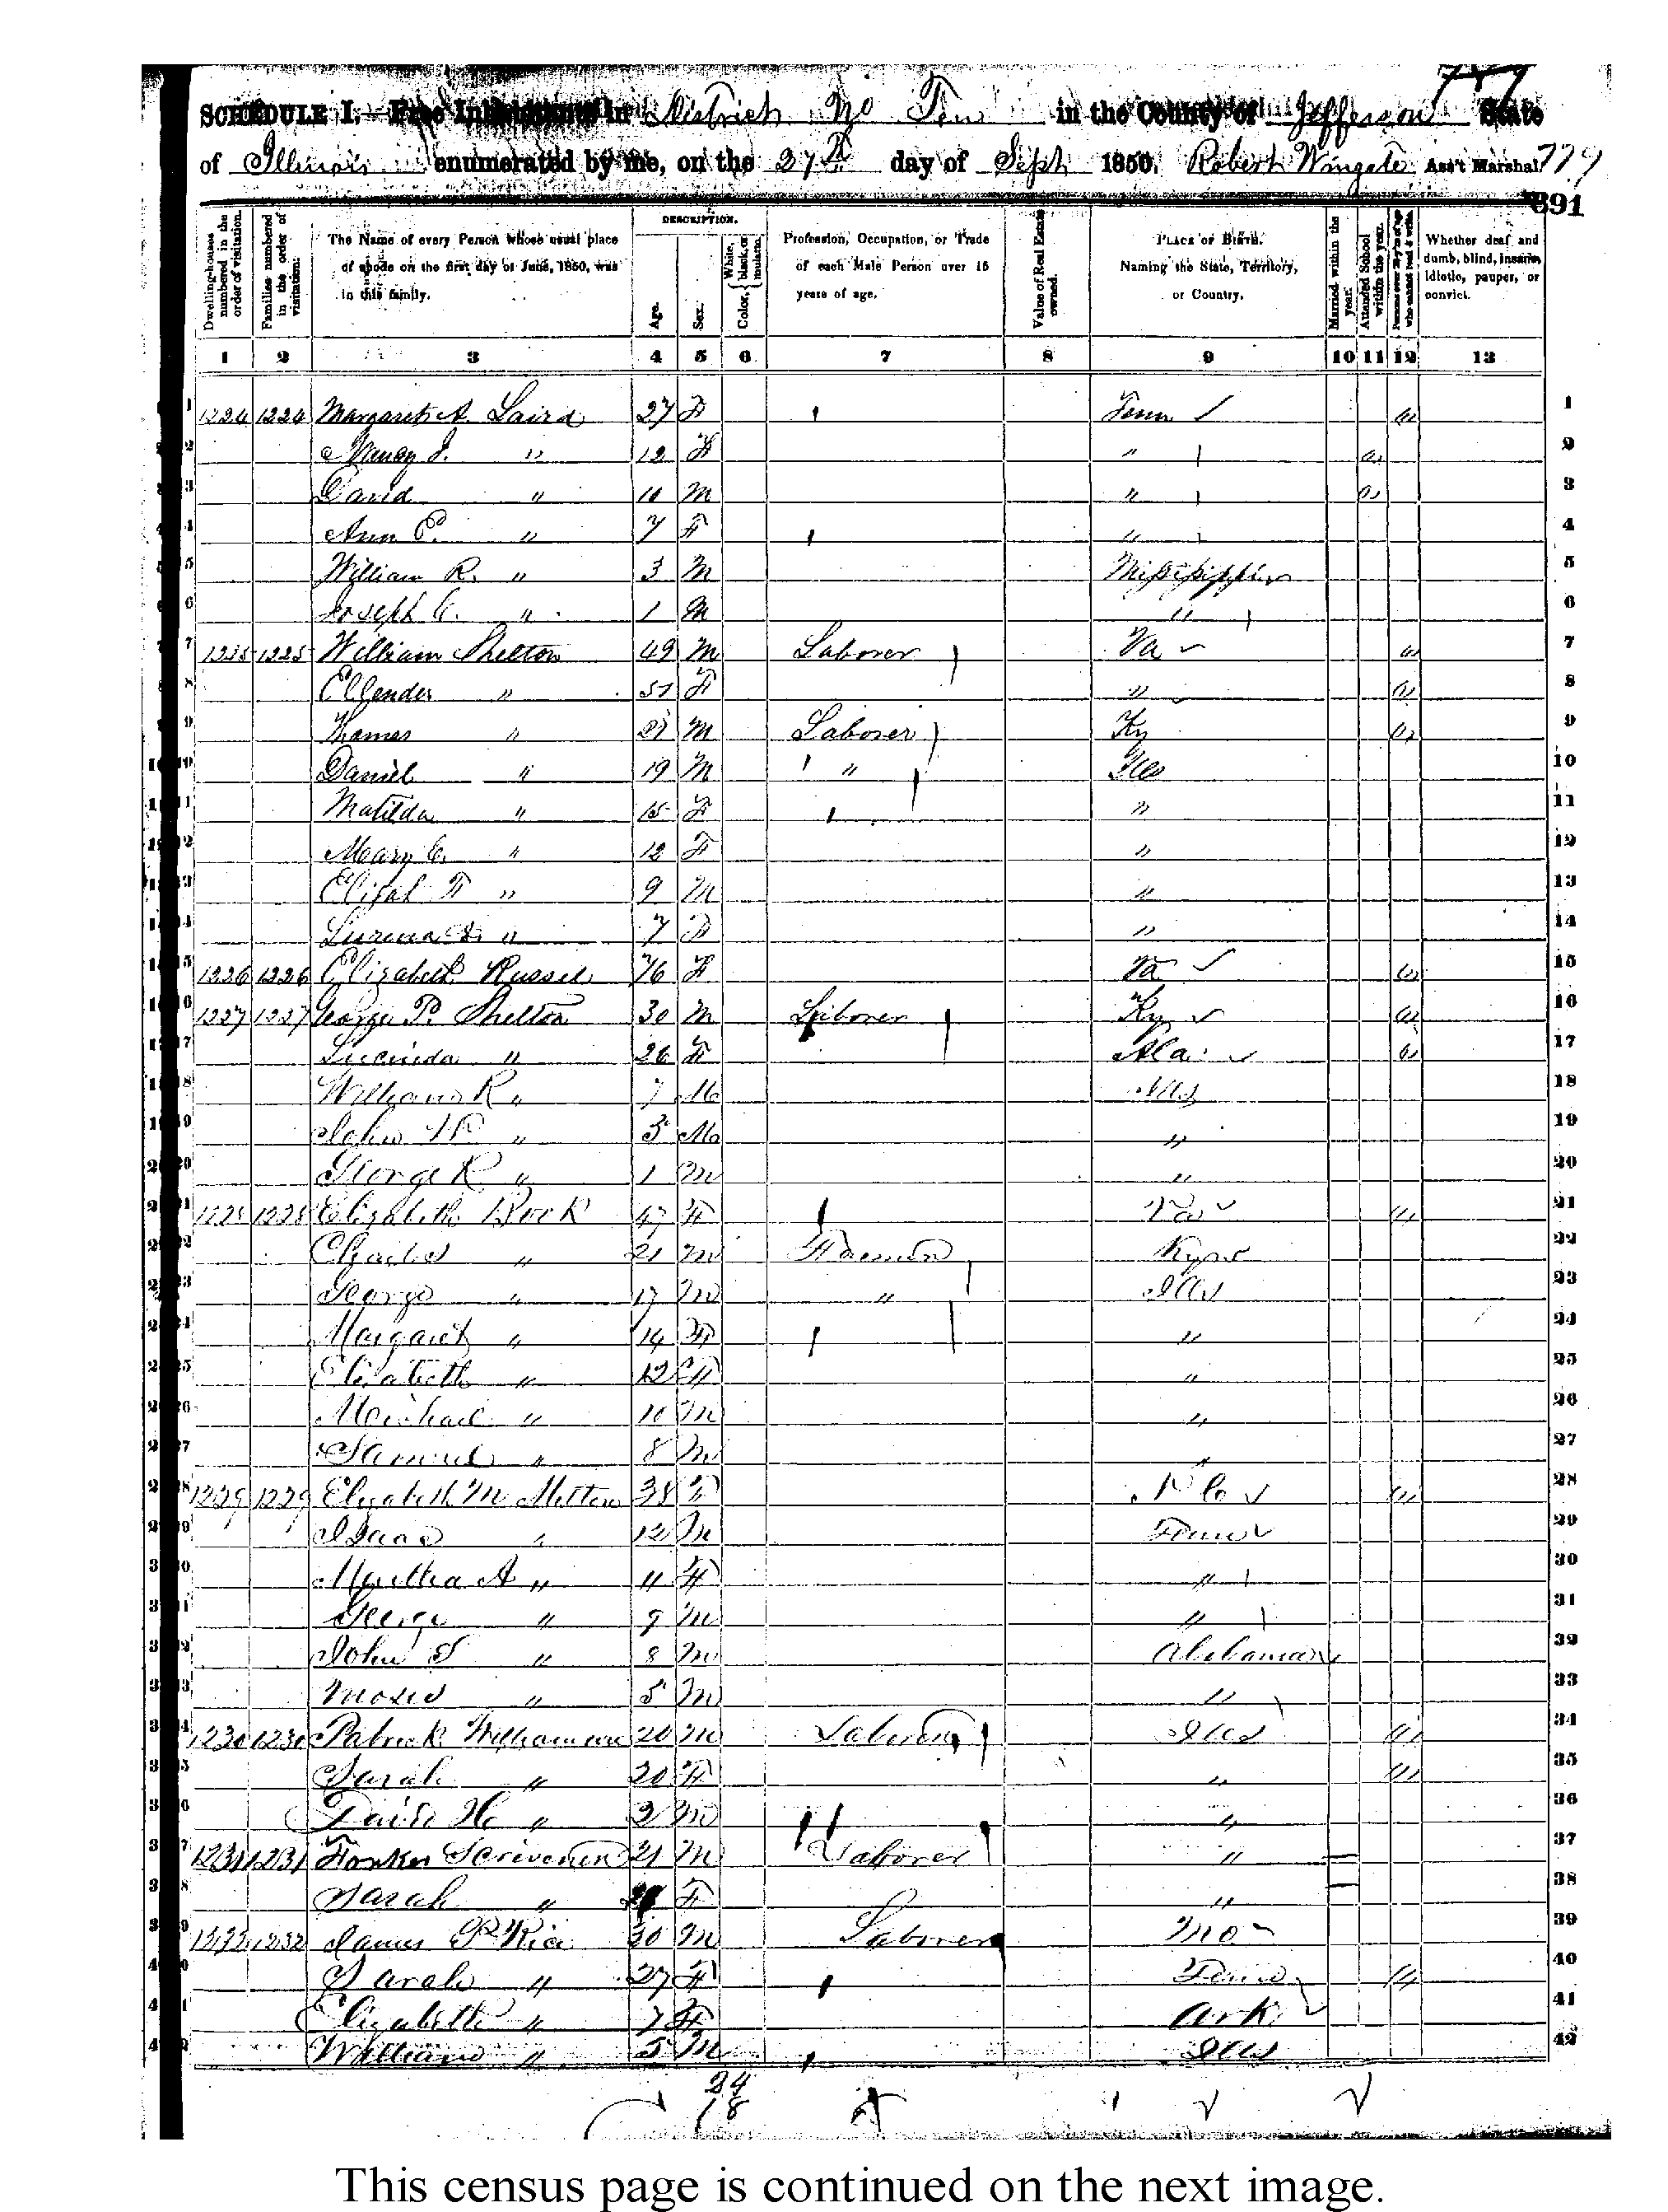 777
SCHEDULE I.—Free Inhabitants in District No Ten in the County of Jefferson State
of Illinois enumerated by me, on the 27th day of Sept 1850. Robert Wingate Ass't Marshal. 779
391
DESCRIPTION.
Dwelling-houses numbered in the order of visitation.
Families numbered in the order of visitation.
The Name of every Person whose usual place of abode on the first day of June, 1850, was in this family.
Age.
Sex.
Color, White, black, or mulatto.
Profession, Occupation, or Trade of each Male Person over 15 years of age.
Value of Real Estate owned.
PLACE OF BIRTH. Naming the State, Territory, or Country.
Married within the year.
Attended School within the year.
Persons over 20 y'rs of age who cannot read & write.
Whether deaf and dumb, blind, insane, idiotic, pauper, or convict.
1 2 3 4 5 6 7 8 9 10 11 12 13
1 1224 1224 Margaret A. Laird 27 F Tenn 1
2 Nancy J. " 12 F " 2
3 David " 10 M " 3
4 Ann E. " 7 F " 4
5 William R. " 3 M Mississippi 5
6 Joseph C. " 1 M " 6
7 1225 1225 William Shelton 49 M Laborer Va 7
8 Ellender " 51 F " 8
9 Thomas " 21 M Laborer Ky 9
10 Daniel " 19 M " Ills 10
11 Matilda " 15 F " 11
12 Mary C. " 12 F " 12
13 Elijah F " 9 M " 13
14 " 7 F " 14
15 1226 1226 Elizabeth Russel 76 F Va 15
16 1227 1227 George P. Shelton 30 M Laborer Ky 16
17 Lucinda " 26 F Ala 17
18 William R " 7 M Ills 18
19 John " 5 M " 19
20 George R " 1 M " 20
21 1228 1228 Elizabeth Bock 47 F Va 21
22 Charles " 21 M Farmer Ky 22
23 George " 17 M " Ills 23
24 Margaret " 14 F " 24
25 Elizabeth " 12 F " 25
26 Michael " 10 M " 26
27 Samuel " 8 M " 27
28 1229 1229 Elizabeth M Melton 38 F N C 28
29 Isaac " 12 M Tenn 29
30 Martha A " 11 F " 30
31 George " 9 M " 31
32 John S " 8 M Alabama 32
33 Moses " 5 M " 33
34 1230 1230 Patrick Williamson 20 M Laborer Ills 34
35 Sarah " 20 F " 35
36 David H. " 2 M " 36
37 1231 1231 Scrivener 21 M Laborer " 37
38 Sarah " F " 38
39 1232 1232 James P Rice 30 M Laborer Mo 39
40 Sarah " 27 F Tenn 40
41 Elizabeth " 7 F Ark 41
42 William " 5 M Ills 42
24
18
This census page is continued on the next image.